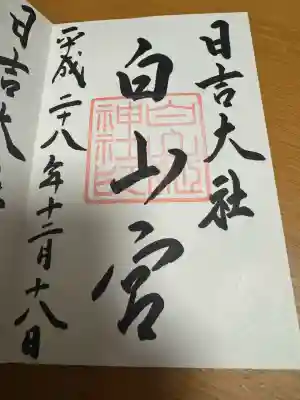 日吉大社
白山宮
白山姫
神社印
平成二十八年十二月十八日
日吉大